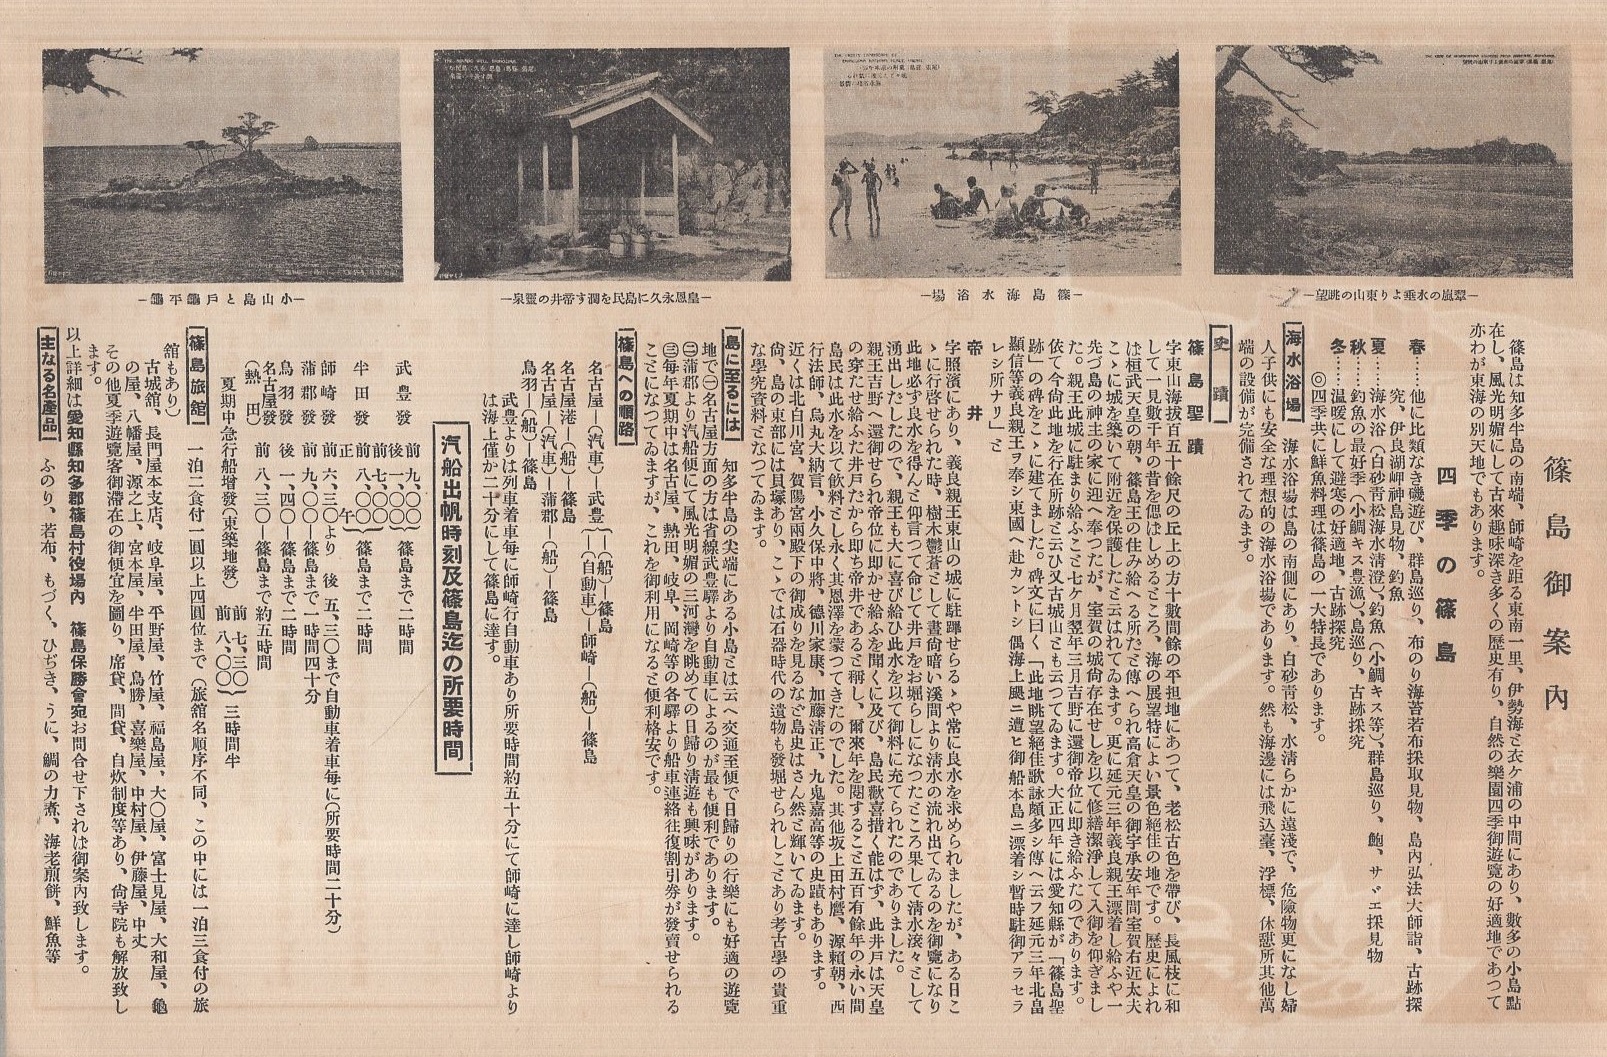 －翠嵐の水垂より東山の眺望－
－篠島海水浴場－
－皇恩永久に島民を潤す帝井の靈泉－
－小山島と戸龜平龜－
篠島御案內
篠島は知多半島の南端、師崎を距る東南一里、伊勢海と衣ケ浦の中間にあり、數多の小島點
在し、風光明媚にして古來趣味深き多くの歷史有り、自然の樂園四季御遊覽の好適地であつて
亦わが東海の別天地でもあります。
四季の篠島
春…他に比類なき磯遊び、群島巡り、布のり海苔若布採取見物、島內弘法大師詣、古跡探
究、伊良湖岬神島見物、釣魚
夏……海水浴（白砂靑松海水淸澄）、釣魚（小鯛キス等）、群島巡り、鮑、サヾエ採見物
秋……釣魚の最好季（小鯛キス豊漁）、島巡り、古跡探究
冬……温暖にして避寒の好適地、古跡探究
◎四季共に鮮魚料理は篠島の一大特長であります。
海水浴場 海水浴場は島の南側にあり、白砂靑松、水淸らかに遠淺で、危險物更になし婦
人子供にも安全な理想的の海水浴場であります。然も海邊には飛込臺、浮標、休憩所其他萬
端の設備が完備されてゐます。
史蹟
篠島聖蹟
字東山海拔百五十餘尺の丘上の方十數間餘の平担地にあつて、老松古色を帶び、長風枝に和
して一見數千年の昔を偲ばしめるところ、海の展望特によい景色絕佳の地です。歷史によれ
ば桓武天皇の朝、篠島王の住み給へる所だと傳へられ高倉天皇の御宇承安年間室賀右近太夫
こゝに城を築いて附近を保護したと云はれてゐます。更に延元三年義良親王漂着し給ふや一
先づ島の神主の家に迎へ奉つたが、室賀の城尙存在せしを以て修繕潔淨して入御を仰ぎまし
た。親王此城に駐まり給ふこと七ケ月翌年三月吉野に還御帝位に卽き給ふたのであります。
依て今尙此地を行在所跡と云ひ又古城山とも云つてゐます。大正四年には愛知縣が「篠島聖
跡」の碑をこゝに建てました。碑文に曰く「此地眺望絕佳歌詠頗多シ傳ヘ云フ延元三年北畠
顯信等義良親王ヲ奉シ東國ヘ赴カントシ偶海上颶ニ遭ヒ御船本島ニ漂着シ暫時駐御アラセラ
レシ所ナリ」と
帝井
字照濱にあり、義良親王東山の城に駐蹕せらるゝや常に良水を求められましたが、ある日こ
ゝに行啓せられた時、樹木鬱蒼として晝尙暗い溪間より清水の流れ出てゐるのを御覽になり
此地必ず良水を得んと仰言つて命じて井戸をお堀らしになつたところ果して清水滾々として
湧出したしたので、親王も大に喜び給ひ此水を以て御料に充てられたのでありました。
親王吉野へ還御せられ帝位に卽かせ給ふを聞くに及び、島民歡喜措く能はず、此井戸は天皇
の穿たせ給ふた井戸だから卽ち帝井であると稱し、爾來年を閱すること五百有餘年の永い間
島民は此水を以て飮料とし永く其恩澤を蒙つてきたのでした。其他坂上田村麿、源賴朝、西
行法師、烏丸大納言、小久保中將、德川家康、加藤淸正、九鬼嘉高等の史蹟もあります。
近くは北白川宮、賀陽宮兩殿下の御成りを見るなど島史はさん然と輝いてゐます。
尙、島の東部には貝塚あり、こゝでは石器時代の遺物も發堀せられしことあり考古學の貴重
な學究資料となつてゐます。
島に至るには 知多半島の尖端にある小島とは云へ交通至便で日歸りの行樂にも好適の遊覽
地で㊀名古屋方面の方は省線武豊驛より自動車によるのが最も便利であります。
㊁蒲郡より汽船便にて風光明媚の三河灣を眺めての日歸り清遊も興味があります。
㊂每年夏期中は名古屋、熱田、岐阜、岡崎等の各驛より船車連絡往復割引券が發賣せられる
ことになつてゐますが、これを御利用になると便利格安です。
篠島への順路
名古屋―（汽車）―武豊｛―（船）―篠島
―（自動車）―師崎―（船）―篠島
名古屋港―（船）―篠島
名古屋―（汽車）―蒲郡―（船）―篠島
鳥羽―（船）―篠島
武豊よりは列車着車每に師崎行自動車あり所要時間約五十分にて師崎に達し師崎より
は海上僅か二十分にして篠島に達す。
汽船出帆時刻及篠島迄の所要時間
武豊發 前 九、〇〇 後 一、〇〇｝篠島まで二時間
半田發 前 七、〇〇 正午｝篠島まで二時間
師崎發 前 六、三〇より 後 五、三〇まで自動車着車每に（所要時間二十分）
蒲郡發 前 九、〇〇―篠島まで一時間四十分
鳥羽發 後 一、四〇―篠島まで二時間
名古屋發（熱田） 前 八、三〇―篠島まで約五時間
夏期中急行船增發（東築地發） 前 七、三〇 前 八、〇〇｝三時間半
篠島旅舘 一泊二食付一圓以上四圓位まで（旅舘名順序不同、この中には一泊三食付の旅
舘もあり）
古城舘、長門屋本支店、岐阜屋、平野屋、竹屋、福島屋、大〇屋、富士見屋、大和屋、龜
の屋、八幡屋、源之上、宮本屋、半田屋、鳥勝、喜樂屋、中村屋、伊藤屋、中丈
その他夏季遊覽客御滯在の御便宜を圖り、席貸、間貸、自炊制度等あり、尙寺院も解放致し
ます。
以上詳細は愛知縣知多郡篠島村役場內 篠島保勝會宛お問合せ下されは御案內致します。
主なる名產品 ふのり、若布、もづく、ひぢき、うに、鯛の力煮、海老煎餅、鮮魚等